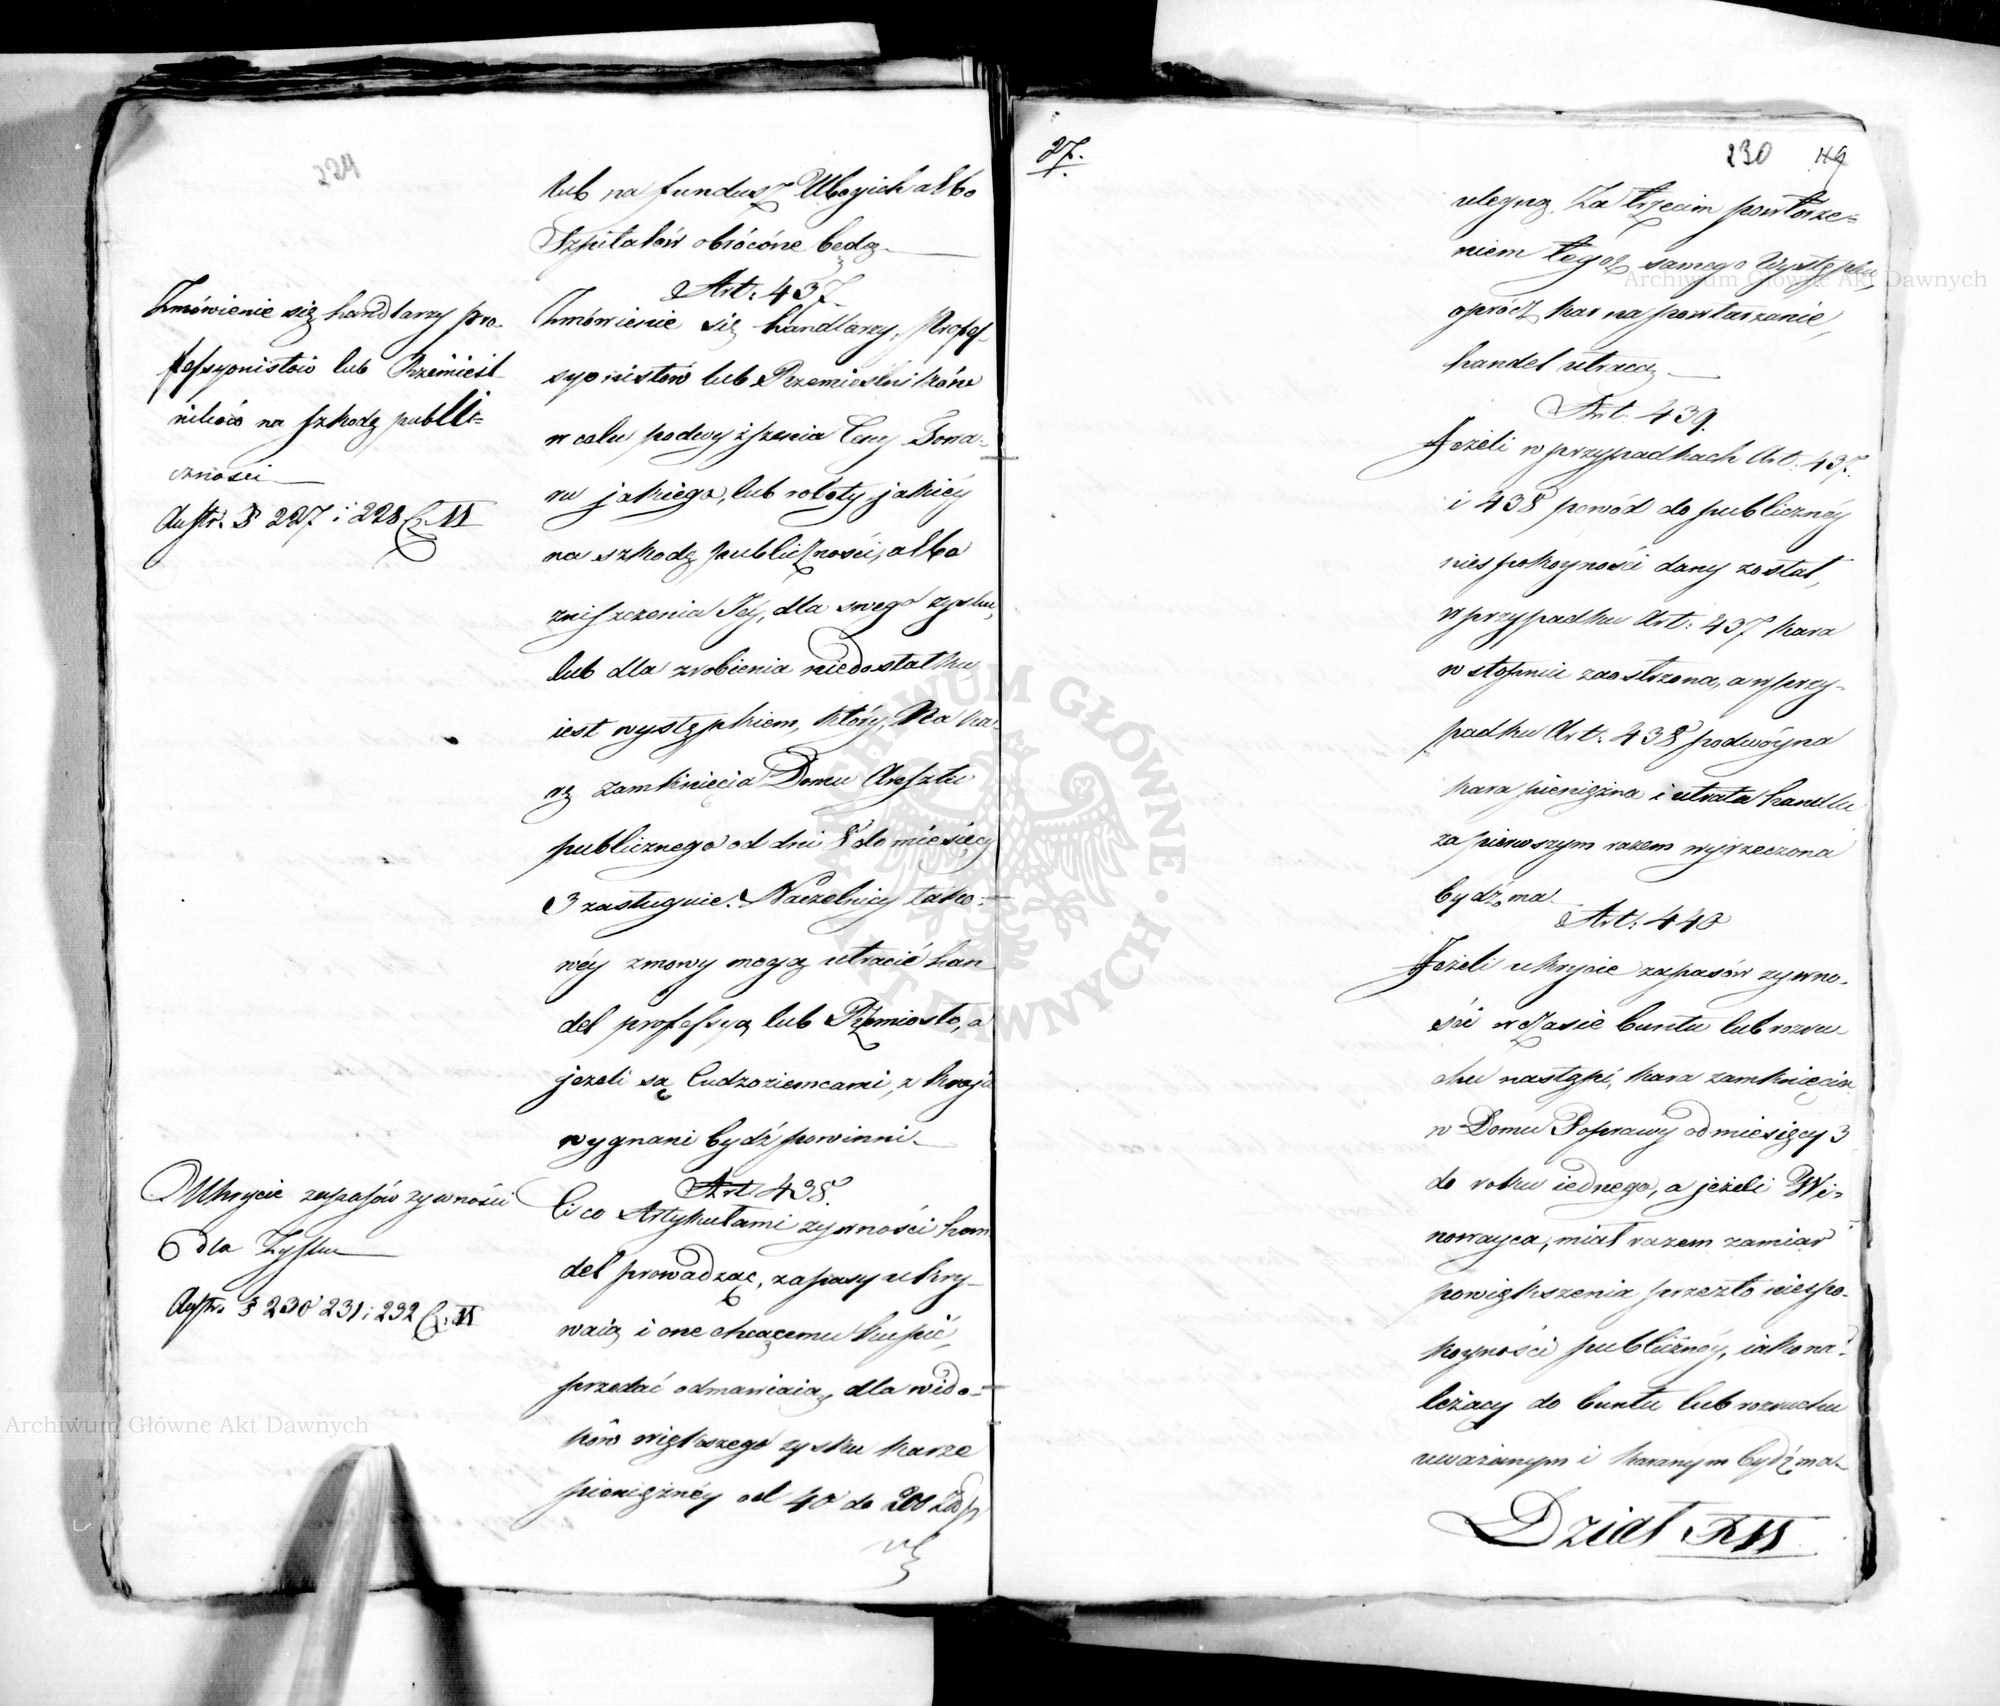 229
lub na fundusz Ubogich albo
Szpitalów obrócóne będą
Zmówienie się handlarzy pro-
fessyonistów lub Rzemieśl-
ników na szkodę publi-
czności
Austr. § 227 i 228 Cz. II
Art: 437
Zmówienie się handlarzy, Profes-
syonistów lub Rzemieslników
w celu podwyższenia Ceny Towa-
ru jakiego, lub roboty jakiéy
na szkodę publiczności, albo
zniszczenia Jéy, dla swego zysku,
lub dla zrobienia niedostatku
iest występkiem, który, Na ka-
rę zamknięcia Domu Aresztu
publicznego od dni 8 do miesięcy
3 zasługuie. Naczelnicy tako-
wéy zmowy mogą utracić han
del professyą lub Rzemiosło, a
jeżeli są Cudzoziemcami, z kraju
wygnani bydź powinni
Ukrycie zapasów zywności
dla Zysku
Austr. § 230 231 i 232 Cz. II
Art 438.
Ci co Artykułami zywności han
del prowadząc, zapasy ukry-
waią i one chcącemu kupić,
przedać odmawiaią, dla wido-
ków większego zysku karze
pieniężnéy od 40 do 200 Złp
27.
230 119
ulegną. Za trzecim powtórze-
niem tegoż samego Występku,
oprócz kar na powtarzanie,
handel utracą
Art. 439.
Jeżeli w przypadkach Art. 437.
i 438 powód do publicznéy
niespokoyności dany został,
w przypadku Art: 437 kara
w stopniu zaostrzona, a w przy-
padku Art: 438 podwóyna
kara pieniężna i utrata handlu
za pierwszym razem wyrzeczona
bydź ma
Art: 440
Jeżeli ukrycie zapasów zywno-
ści w czasie buntu lub rozru-
chu nastąpi, kara zamknięcia
w Domu Poprawy od miesięcy 3
do roku iednego, a jeżeli Wi-
nowayca, miał razem zamiar
powiększenia przezto niespo-
koyności publicznéy, iako na-
leżący do buntu lub rozruchu
uważanym i karanym bydź ma
Dział
Archiwum Główne Akt Dawnych
Archiwum Główne Akt Dawnych
ARCHIWUM GŁÓWNE AKT DAWNYCH